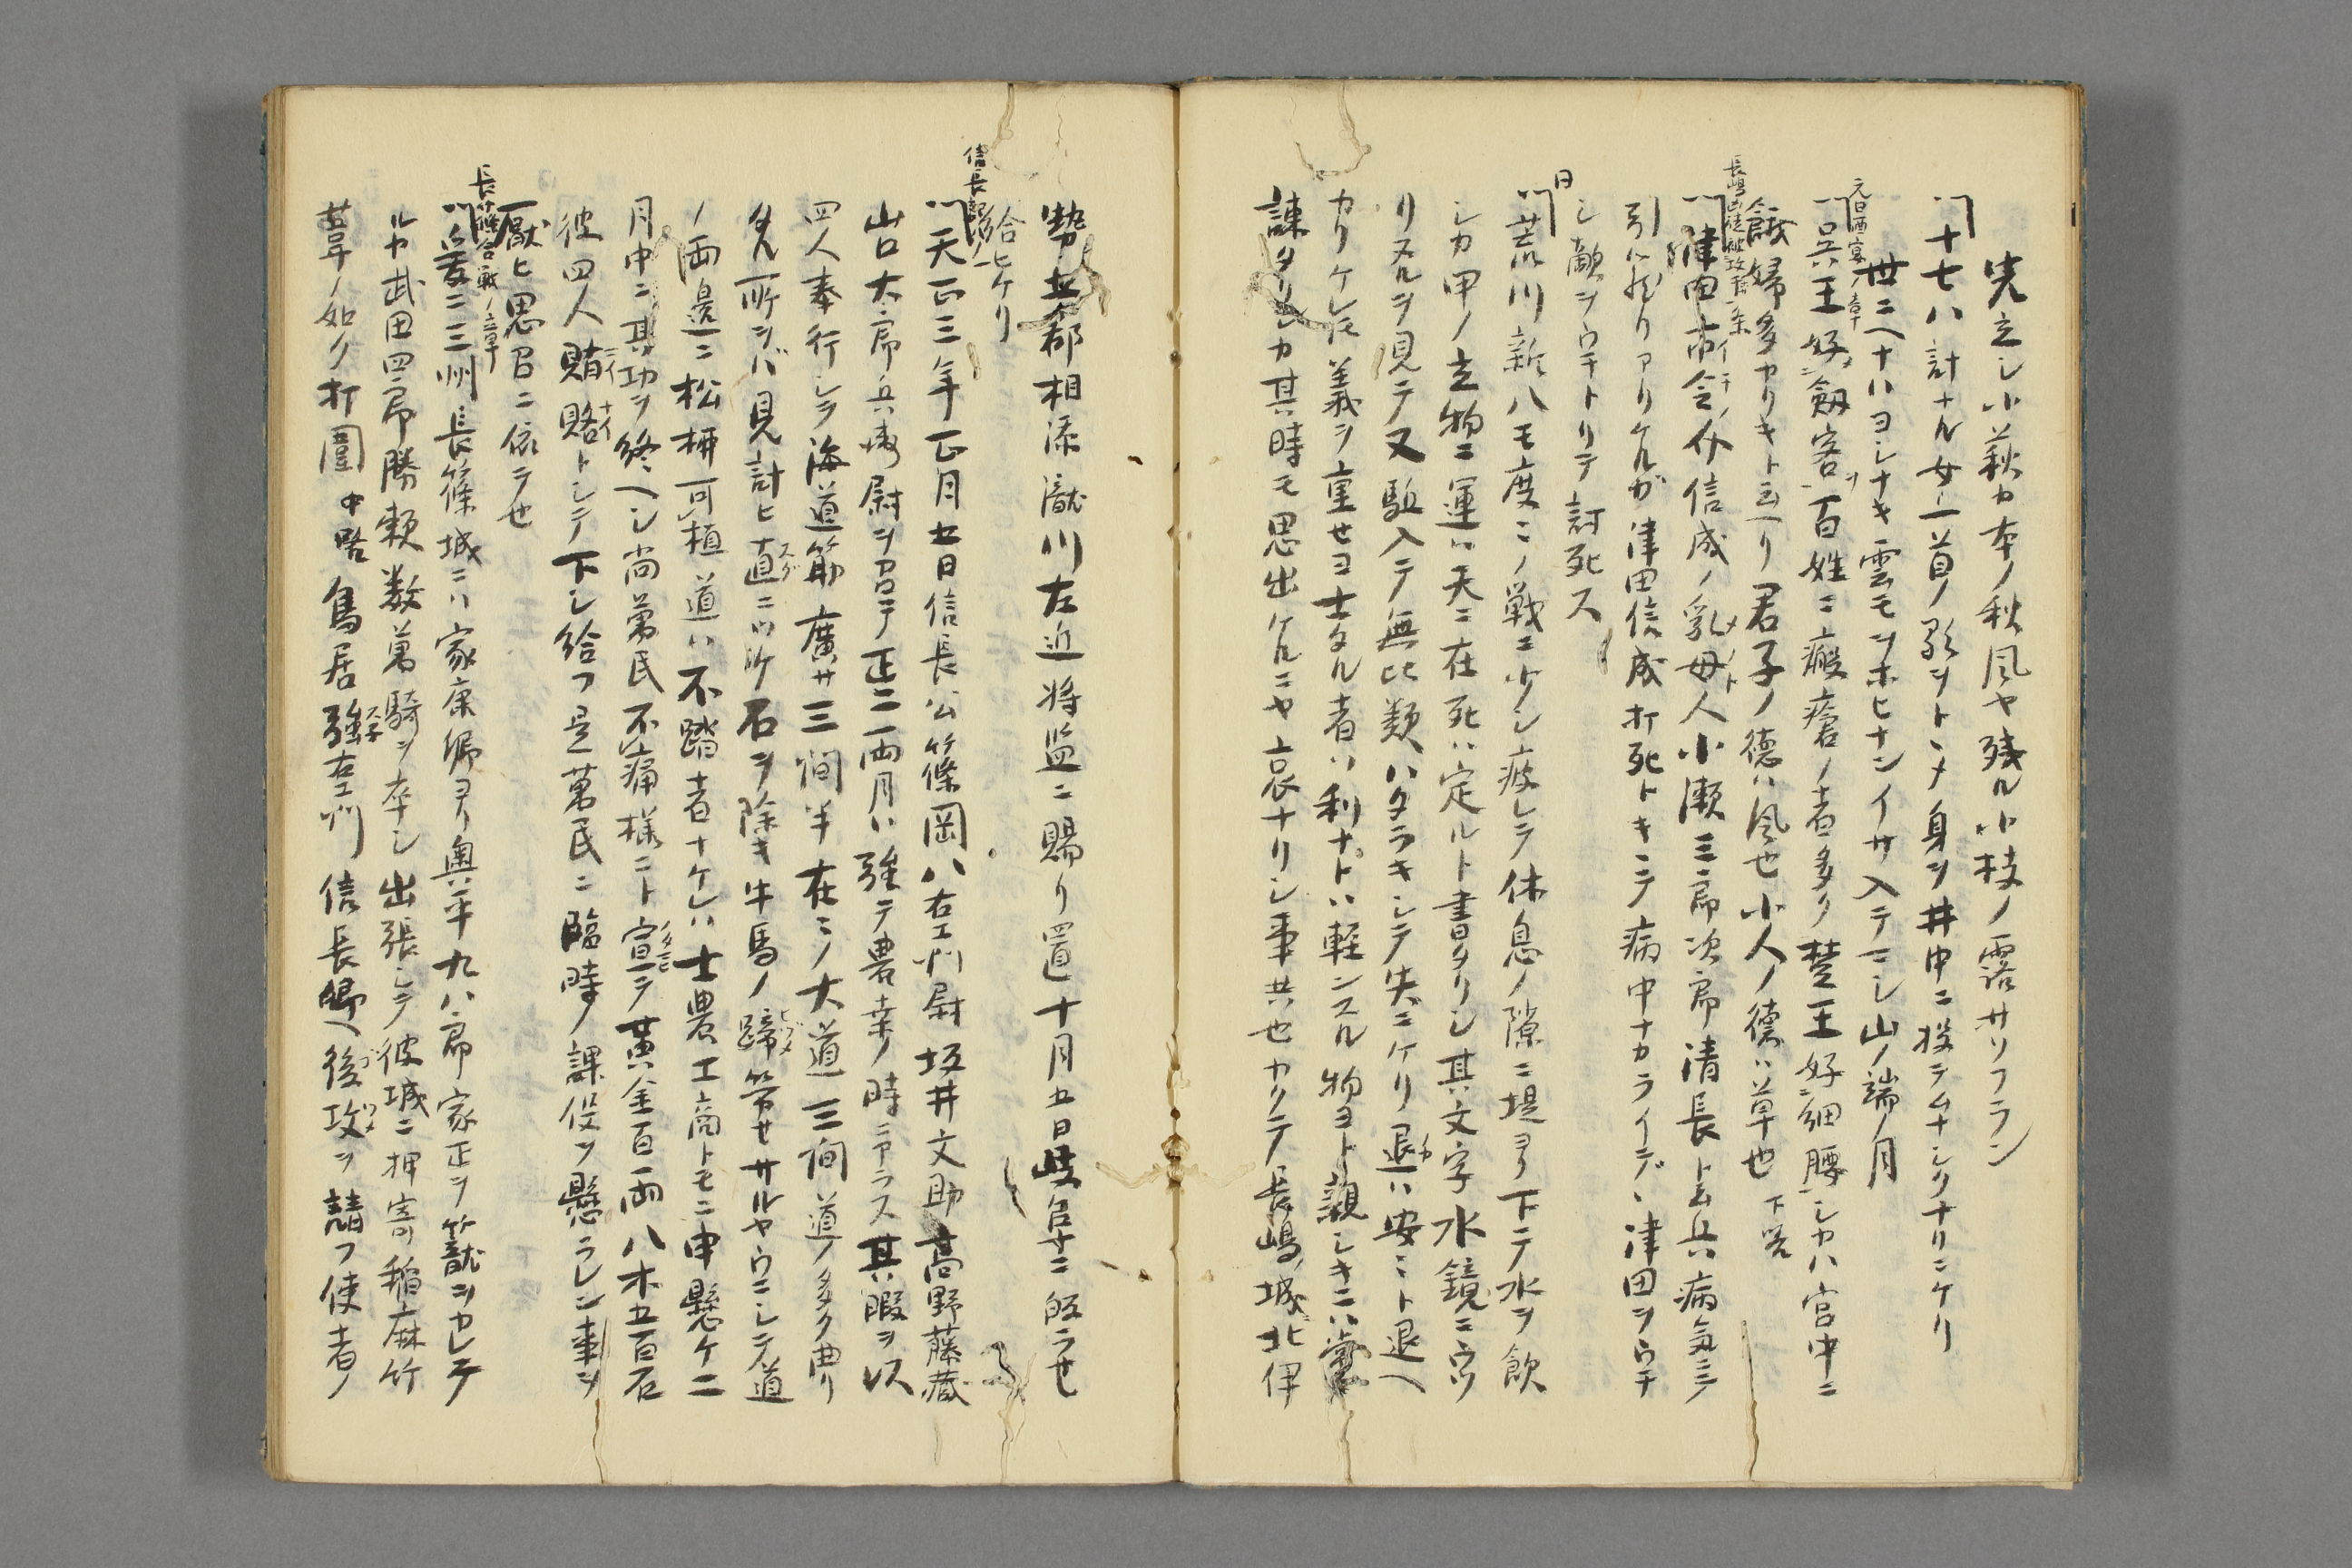 先立シ小萩カ本ノ秋風ヤ残ル小枝ノ露サソフラン
一十七八計ナル女一首ノ歌ヲトヽメ身ヲ井中ニ投テムナシクナリニケリ
世ニヘナハヨシナキ雲モヲホヒナンイサ入テマシ山ノ端ノ月
元日酒宴ノ章
一呉王好剱客百姓ニ瘢瘡ノ者多ク楚王好細腰シカハ宮中ニ
餓婦多カリキト云リ君子ノ徳ハ風也小人ノ徳ハ草也下畧
一津田市令介信成ノ乳母人小瀬三郎次郎清長ト云兵病気ニテ
引ルアリケルガ津田信成打死トキヽテ病中ナカライデ津田ヲウチ
シ敵ヲウチトリテ討死ス
一荒川新八モ度ニノ戦ニ少シ疲レテ休息ノ隙ニ堤ヨリ下テ水ヲ飲
シカ甲ノ立物ニ運ハ天ニ在死ハ定ルト書タリシ其文字水鏡ニウツ
リヌルヲ見テ又駈入テ無比類ハタラキシテ失ニケリ退ハ安ミト退ヘ
カリケレ𪜈義ヲ重セヨ士タル者ハ利ナトハ軽ンスル物ヨト親シキニハ常
諫タリシカ其時モ思出ケルニヤ哀ナリシ事共也カクテ長嶋ノ城北伊
勢五郡相添瀧川左近将監ニ賜リ置十月五日岐阜ニ皈ラせ
給ヒケリ
信長
一天正三年正月五日信長公篠岡八右エ門尉坂井文助高野藤蔵
山口太郎兵衛尉ヲ召テ正二両月ハ強テ農業ノ時ニアラス其暇ヲ以
四人奉行シテ海道筋廣サ三間半在ミノ大道三間道ノ多ク曲リ
タル所ヲバ見計ヒ直ニツケ石ヲ除キ牛馬ノ蹄労せサルヤウニシテ道
ノ両邊ニ松柳可植道ハ不踏者ナケレハ士農工商トモニ申懸ケ二
月中ニ其功ヲ終ヘシ尚萬民不痛様ニト宣テ黄金百両八木五百石
彼四人賄賂トシテ下シ給フ是萬民ニ臨時ノ課役ヲ懸ラレン事ヲ
厭ヒ思召ニ依テ也
長篠合戦ノ章
一爰ニ三州長篠城ニハ家康卿ヨリ奥平九八郎家正ヲ籠ヲカレテ
ルヤ武田四郎勝頼数萬騎ヲ卒シ出張シテ彼城ニ押寄稲麻竹
葦ノ如ク打圍中畧鳥居強右エ門信長卿ヘ後攻ヲ請フ使者ノ